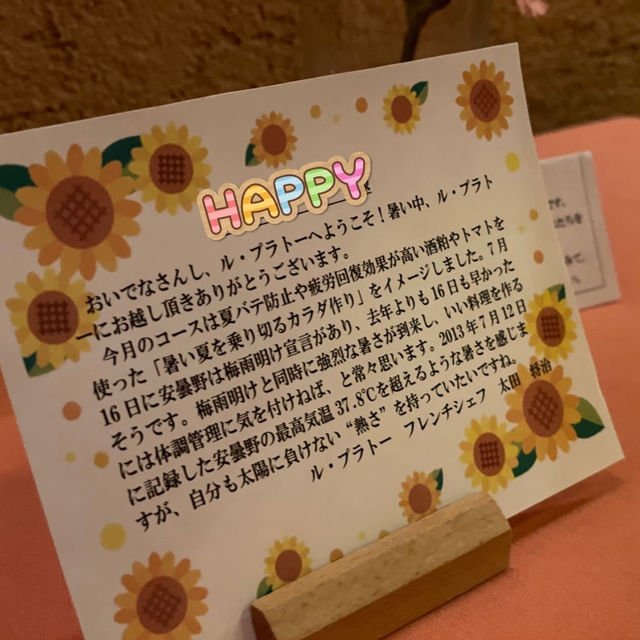 HAPPY
おいでなさんし、ル・プラトーへようこそ！暑い中、ル・プラト
ーにお越し頂きありがとうございます。
今月のコースは夏バテ防止や疲労回復効果が高い酒粕やトマトを
使った「暑い夏を乗り切るカラダ作り」をイメージしました。7月
16日に安曇野は梅雨明け宣言があり、去年よりも16日も早かった
そうです。梅雨明けと同時に強烈な暑さが到来し、いい料理を作る
には体調管理に気を付けねば、と常々思います。2013年7月12日
に記録した安曇野の最高気温37.8℃を超えるような暑さを感じま
すが、自分も太陽に負けない“熱さ”を持っていたいですね。
ル・プラトー　フレンチシェフ　太田　将治